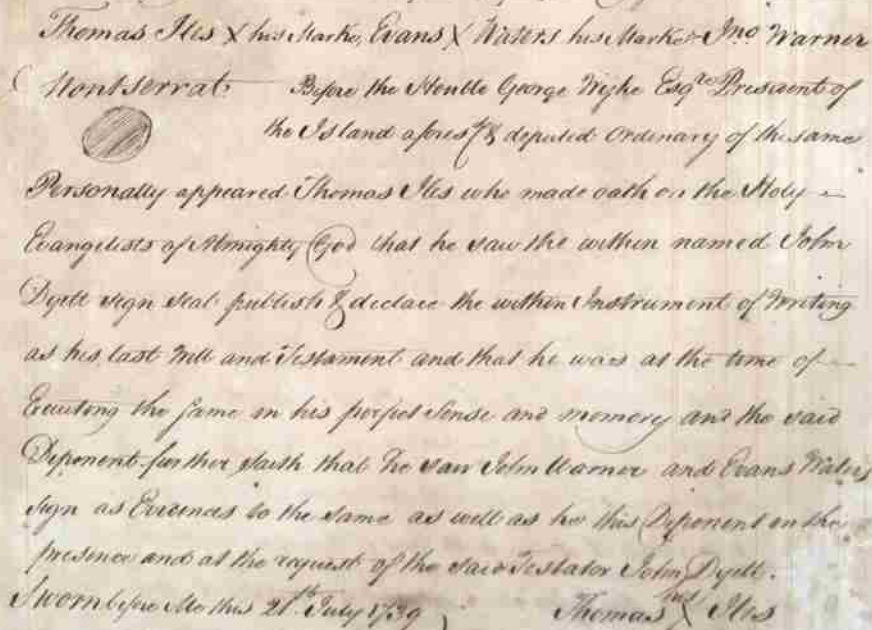 Thomas Iles X his Marke, Evans X Waters his Marke Jno Warner
Montserrat. Before the Honble George Wyke Esqre President of
the Island aforesd & deputed Ordinary of the same
Personally appeared Thomas Iles who made oath on the Holy
Evangelists of Almighty God that he saw the within named John
Dyett sign seal publish & declare the within Instrument of Writing
as his last Will and Testament and that he was at the time of
Executing the same in his perfect Sense and memory and the said
Deponent further saith that he saw John Warner and Evans Waters
sign as Evidences to the same as well as he this Deponent in the
presence and at the request of the said Testator John Dyett.
Sworn before Me this 21st July 1739 Thomas his X Iles